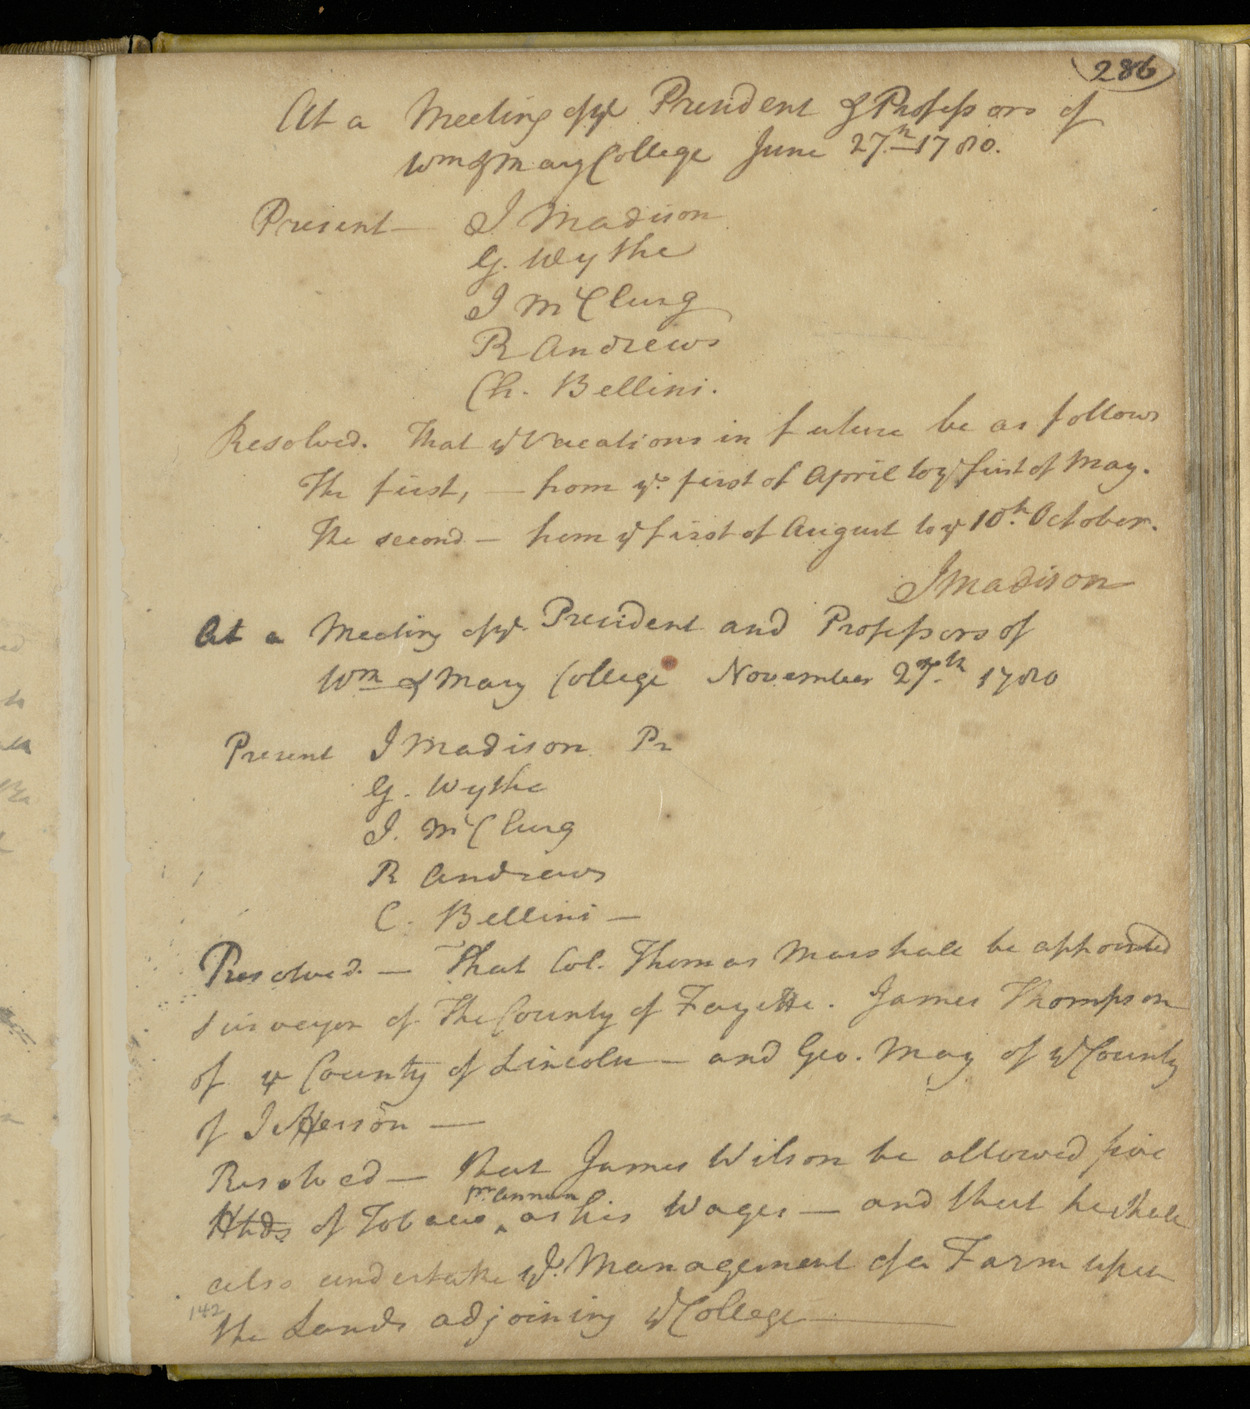 286
At a Meeting of ye President & Professors of
Wm & Mary College June 27th 1780.
Present — J Madison
G. Wythe
J McClung
R Andrews
Ch. Bellini.
Resolved. That ye Vacations in future be as follows
The first, — from ye first of April to ye first of May.
The second — from ye first of August to ye 10th October.
J Madison
At a Meeting of ye President and Professors of
Wm & Mary College November 27th 1780
Present J Madison Pr
G. Wythe
J. McClung
R Andrews
C. Bellini —
Resolved. — That Col. Thomas Marshall be appointed
Surveyor of The County of Fayette. James Thompson
of ye County of Lincoln — and Geo. May of ye County
of Jefferson —
Resolved — that James Wilson be allowed five
pr. annum
Hhds of Tobacco ^ as his Wages — and that he shall
also undertake ye Management of a Farm upon
142
the Lands adjoining ye College —